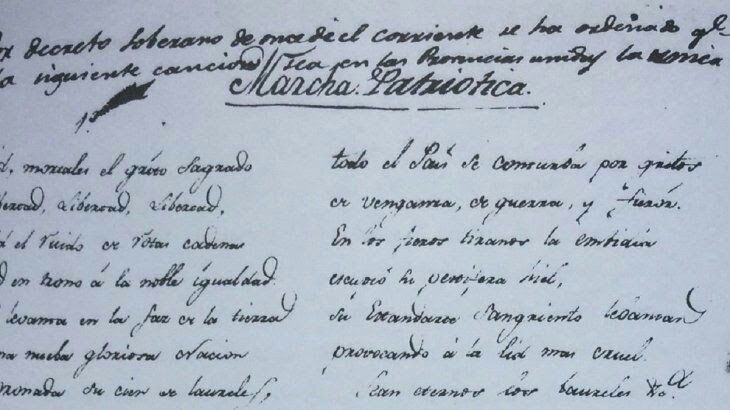 or decreto soberano de once del corriente se ha ordenado qe.
la siguiente cancion sea en las Provincias unidas la unica
Marcha Patriotica.
1ª
d, mortales el grito sagrado
bertad, Libertad, Libertad,
d el ruido de rotas cadenas
d en trono á la noble igualdad.
levanta en la faz de la tierra
na nueba gloriosa Nacion
oronada su cien de laureles,
todo el Pais se conturba por gritos
de venganza, de guerra, y furór.
En los fieros tiranos la embidia
escupió su pestifera hiel,
su Estandarte sangriento lebantan
provocando á la lid mas cruel.
Sean eternos los laureles &a.